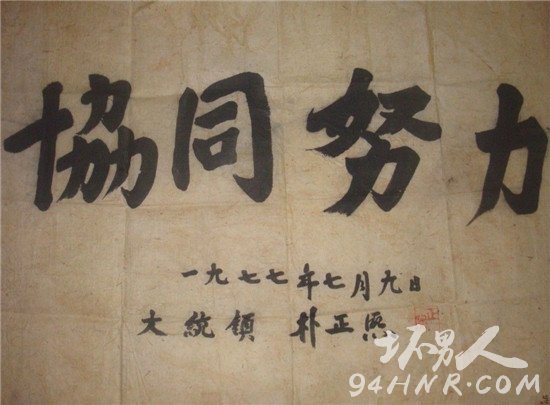 協同努力
一九七七年七月九日
大統領 朴正熙
坏男人
94HNR.COM